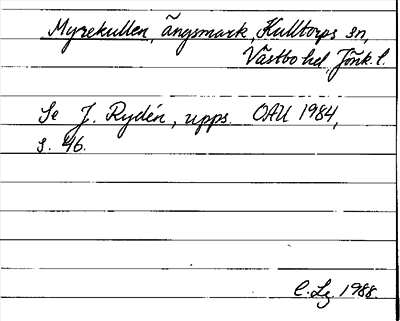 Myrekullen, ängsmark, Kulltorps sn,
Västbo hd, Jönk. l.
Se J. Rydén, upps. OAU 1984,
s. 46.
C. Lg 1988.